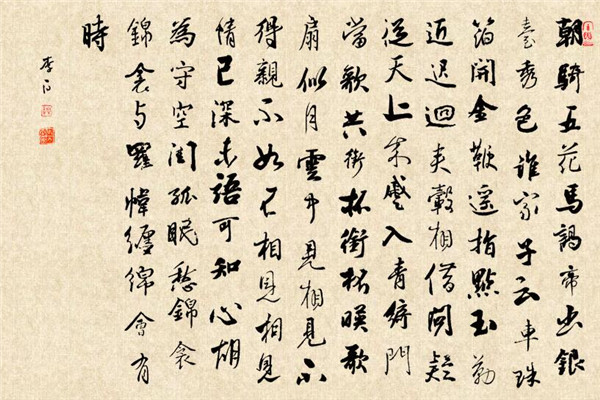 朝騎五花馬謁帝出銀
臺秀色誰家子云車珠
箔開金鞭遥指點玉勒
近迟迴夾轂相借問疑
從天上来蹙入青綺門
當歌共銜杯銜杯暎歌
扇似月雲中見相見不
得親不如不相見相見
情已深未語可知心胡
為守空閨孤眠愁錦衾
錦衾与羅幃纏綿會有
時
李白